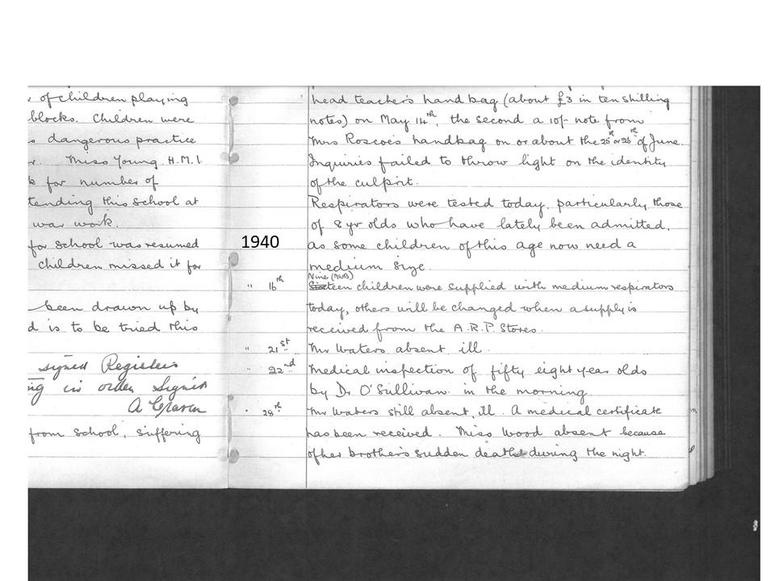 of children playing
blocks. Children were
dangerous practice
Miss Young. H.M.I
for number of
tending this school at
war work.
for school was resumed
children missed it for
been drawn up by
d is to be tried this
signed Registers
ng in order Signed
A Craven
from school, suffering
head teacher's handbag (about £3 in ten shilling
notes) on May 14th, the second a 10/- note from
Mrs Roscoe's handbag on or about the 25th or 26th of June.
Inquiries failed to throw light on the identity
of the culprit.
Respirators were tested today, particularly those
of 8 yr olds who have lately been admitted,
1940 as some children of this age now need a
medium size.
Nine
" 16th Sixteen children were supplied with medium respirators
today, others will be changed when a supply is
received from the A.R.P. Stores.
" 21st Mr Waters absent, ill.
" 22nd Medical inspection of fifty eight year olds
by Dr O'Sullivan in the morning.
" 28th Mr Waters still absent, ill. A medical certificate
has been received. Miss Wood absent because
of her brother's sudden death during the night.